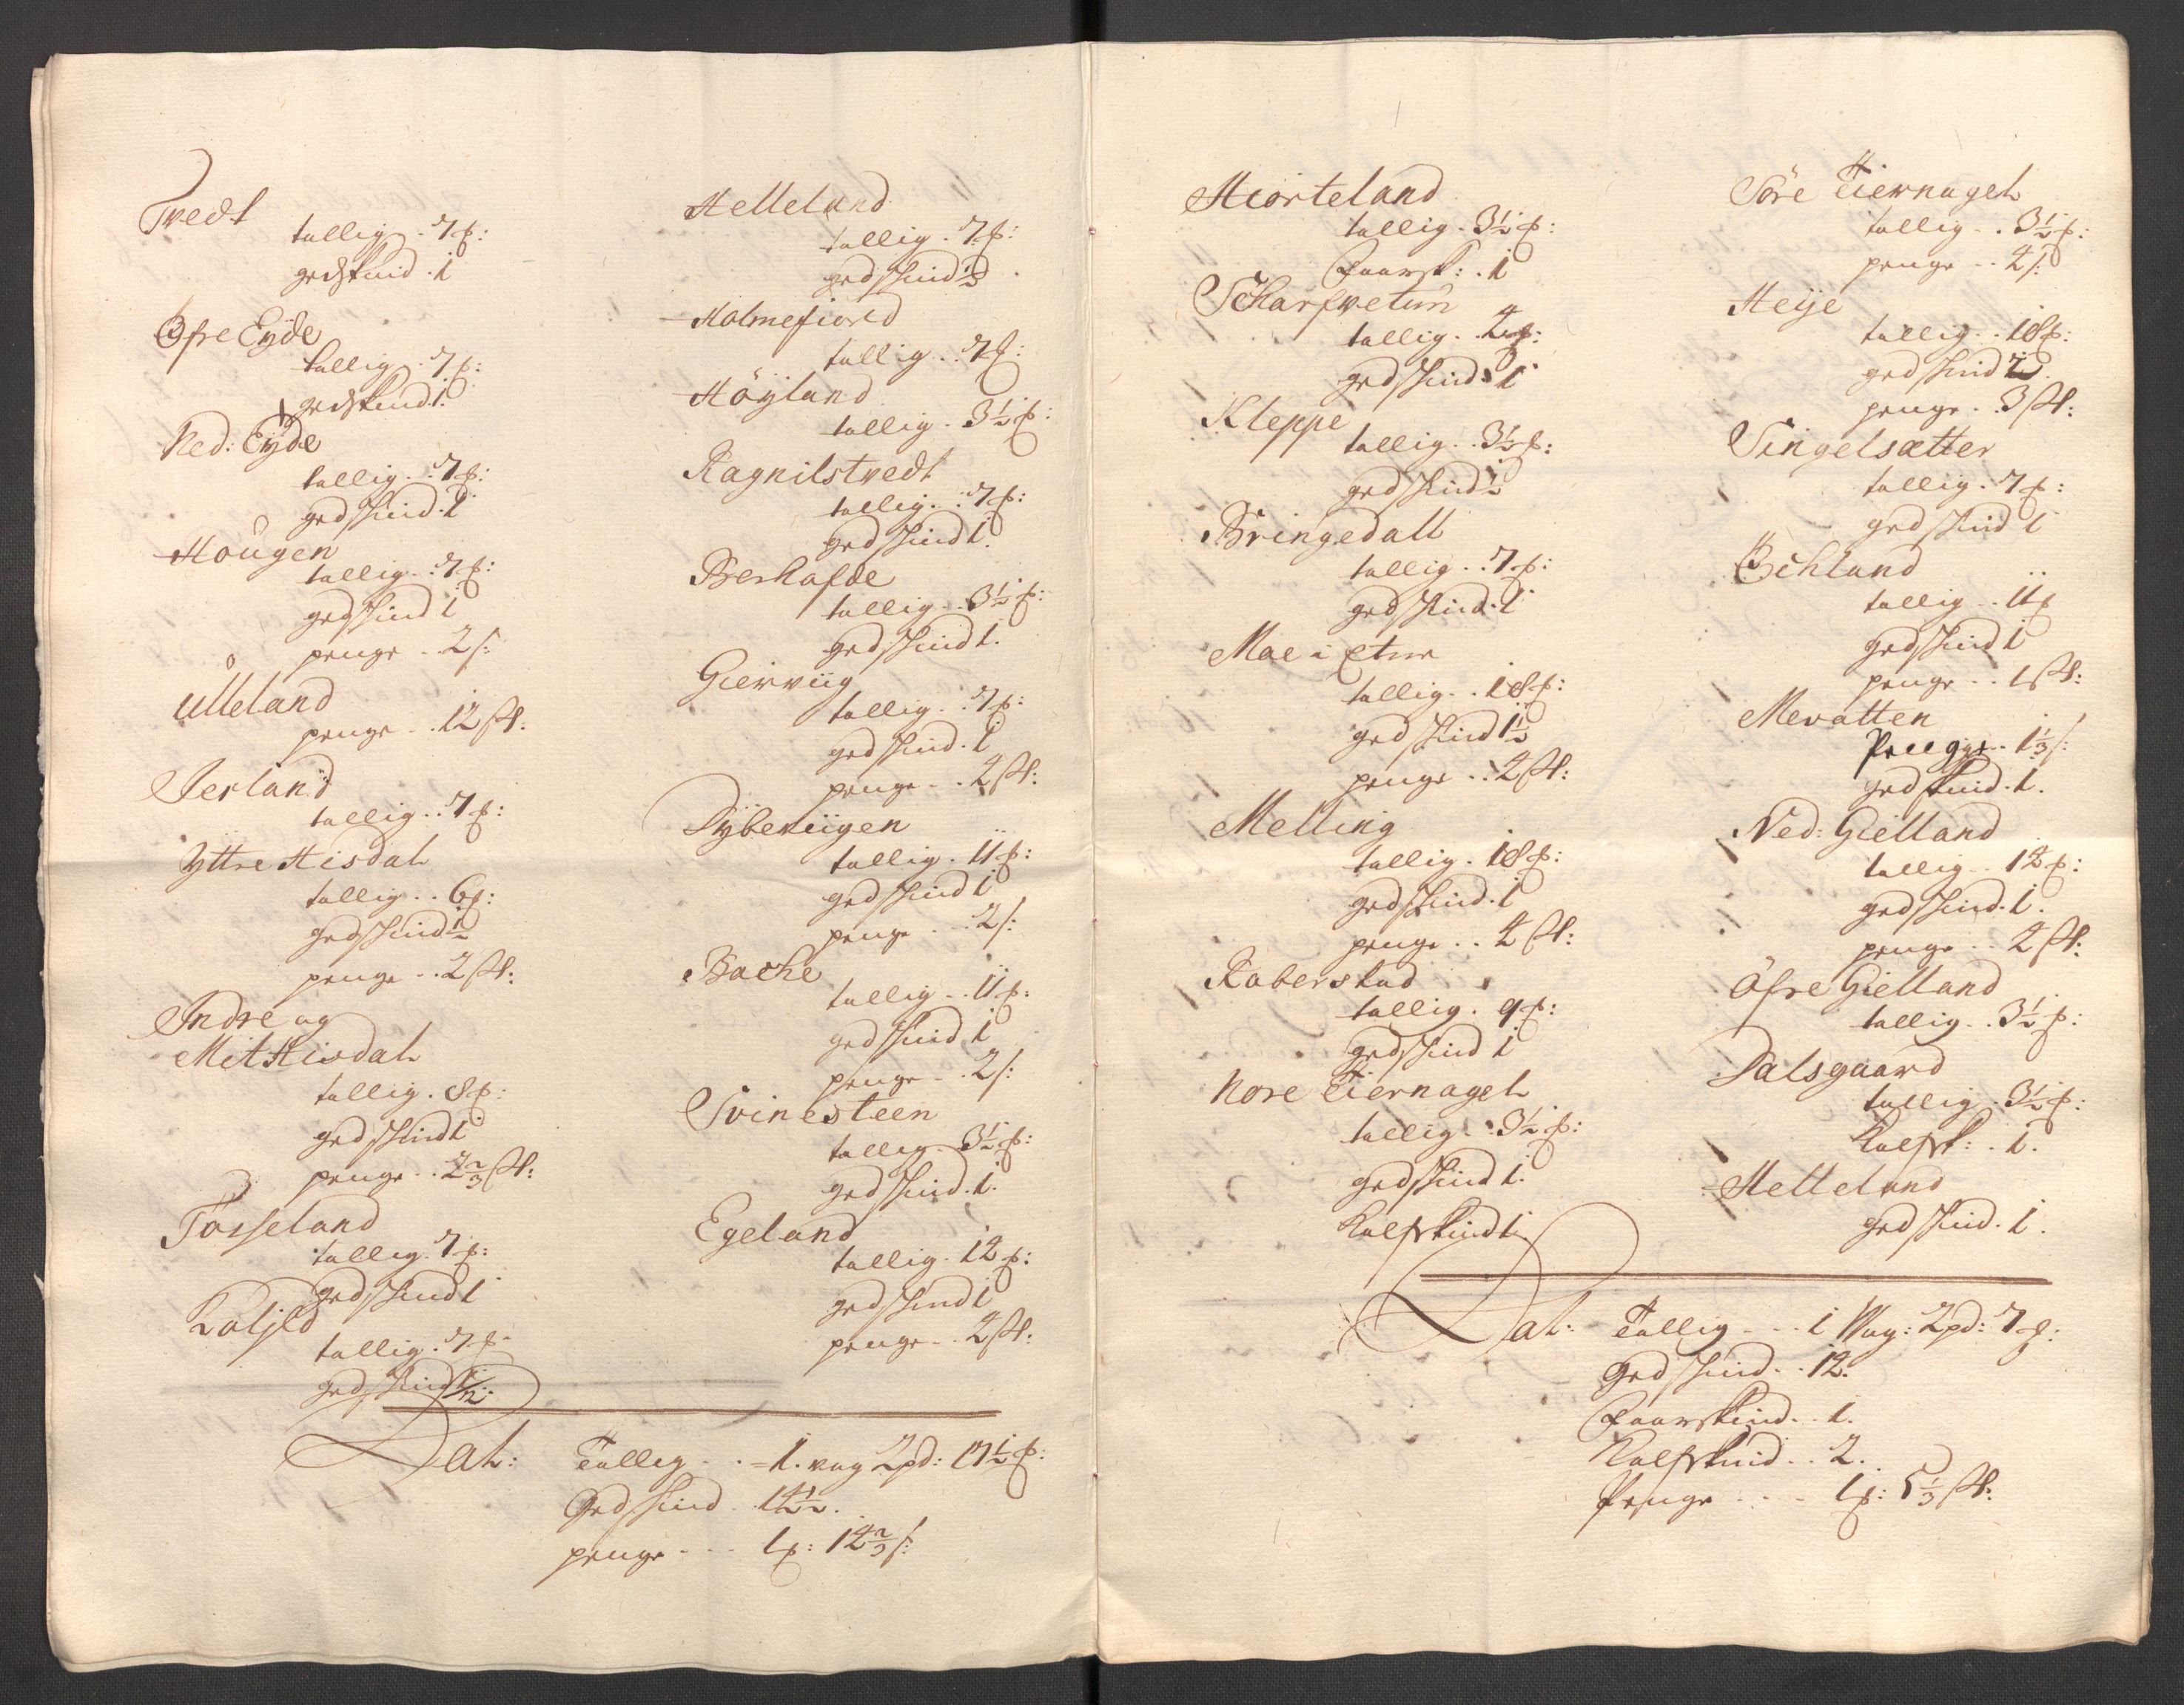 Tvedt
tallig . 7 ß:
gedskind . 1
Øfre Eÿde
tallig . 7 ß:
gedskind 1.
Ned: Eÿde
tallig . 7 ß:
gedskind . 1
Hougen
tallig . 7 ß:
gedskind 1
penge . . 2 ß:
Ulleland
penge . . 12 ß:
Jerland
tallig . . 7 ß:
Yttre Hisdal
tallig . . 6 ß:
gedskind ½
penge . . 2 ß:
Indre og
Mit Hisdal
tallig . 8 ß:
gedskind 1
penge . . 2⅔ ß:
Tosseland
tallig . 7 ß:
gedskind 1
tallig . 7 ß
gedskind ½
Helleland
tallig . 7 ß:
gedskind ½
Holmefiord
tallig . . 7 ß:
Höÿland
tallig . 3½ ß:
Ragnilstvedt
tallig . . 7 ß:
gedskind 1.
Berhafde
tallig . . 3½ ß:
gedskind 1.
Gierviig
tallig . . 7 ß:
gedskind . 1
penge . . 2 ß:
Dÿbeviigen
tallig . 11 ß:
gedskind 1
penge . . 2 ß:
Backe
tallig . . 11 ß:
gedskind 1
penge . . 2 ß:
Svinesteen
tallig . 3½ ß:
gedskind . 1.
Egeland
tallig . 12 ß:
gedskind 1
penge . . 2 ß:
Lat: Tallig . . 1. vog 2 pd: 17½ ß:
Gedskind . 14½.
penge . . . 1 ß: 14⅔ ß:
Hiorteland
tallig . 3½ ß:
Faarsk: . 1
Scharfvetun
tallig . . 4 ß:
gedskind . 1
Kleppe
tallig . . 3½ ß:
gedskind ½
Bringedall
tallig . . 7 ß:
gedskind . 1
Moe i Etne
tallig . . 18 ß:
gedskind 1½
penge . . 2 ß:
Melling
tallig . 18 ß:
gedskind . 1
penge . . 4 ß:
Raberstad
tallig . 9 ß:
gedskind 1
Nore Tiernagel
tallig . . 3½ ß:
gedskind 1.
Kalfskind 1.
Søre Tiernagel
tallig . . 3½ ß:
penge . . 2 ß:
Heije
tallig . . 18 ß:
gedskind
penge . . 3 ß:
Singelsætter
tallig . 7 ß:
gedskind 1
Øchland
tallig . . 11 ß
gedskind 1
penge . . 1 ß:
Mevatten
Penge . . 1⅓ ß:
gedskind . 1.
Ned: Gielland
tallig . . 12 ß:
gedskind . 1.
penge . . 2 ß:
Öfre Gielland
tallig . . 3½ ß:
Dalsgaard
tallig . 3½ ß:
Kalfsk: . 1.
Helleland
gedskind . 1.
Lat: Tallig . . . 1 Vog: 2 pd: 7 ß:
Gedskind . . 12.
Faarskind . . 1.
Kalfskind . . 2.
Penge . . . . 1 ß: 5⅓ ß: